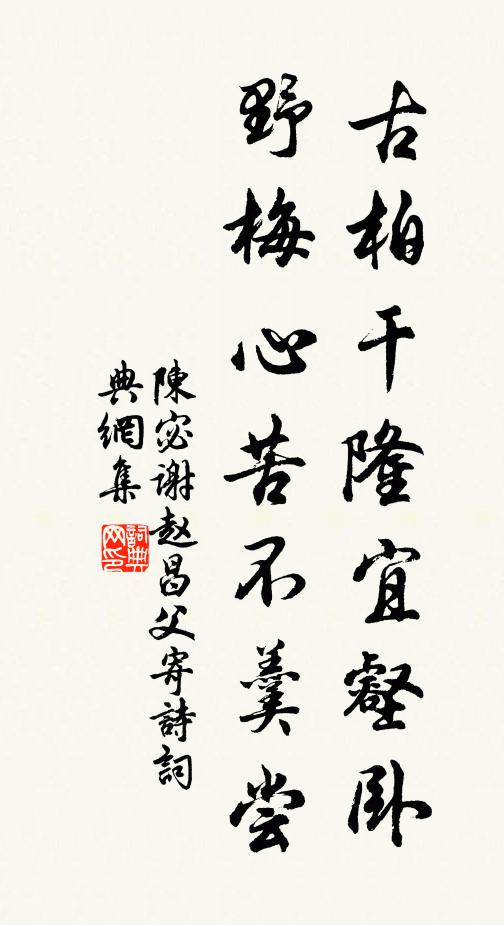 古柏干隆宜壑卧
野梅心苦不羹尝
陳宓谢赵昌父寄詩詞
典網集
詞典
网印